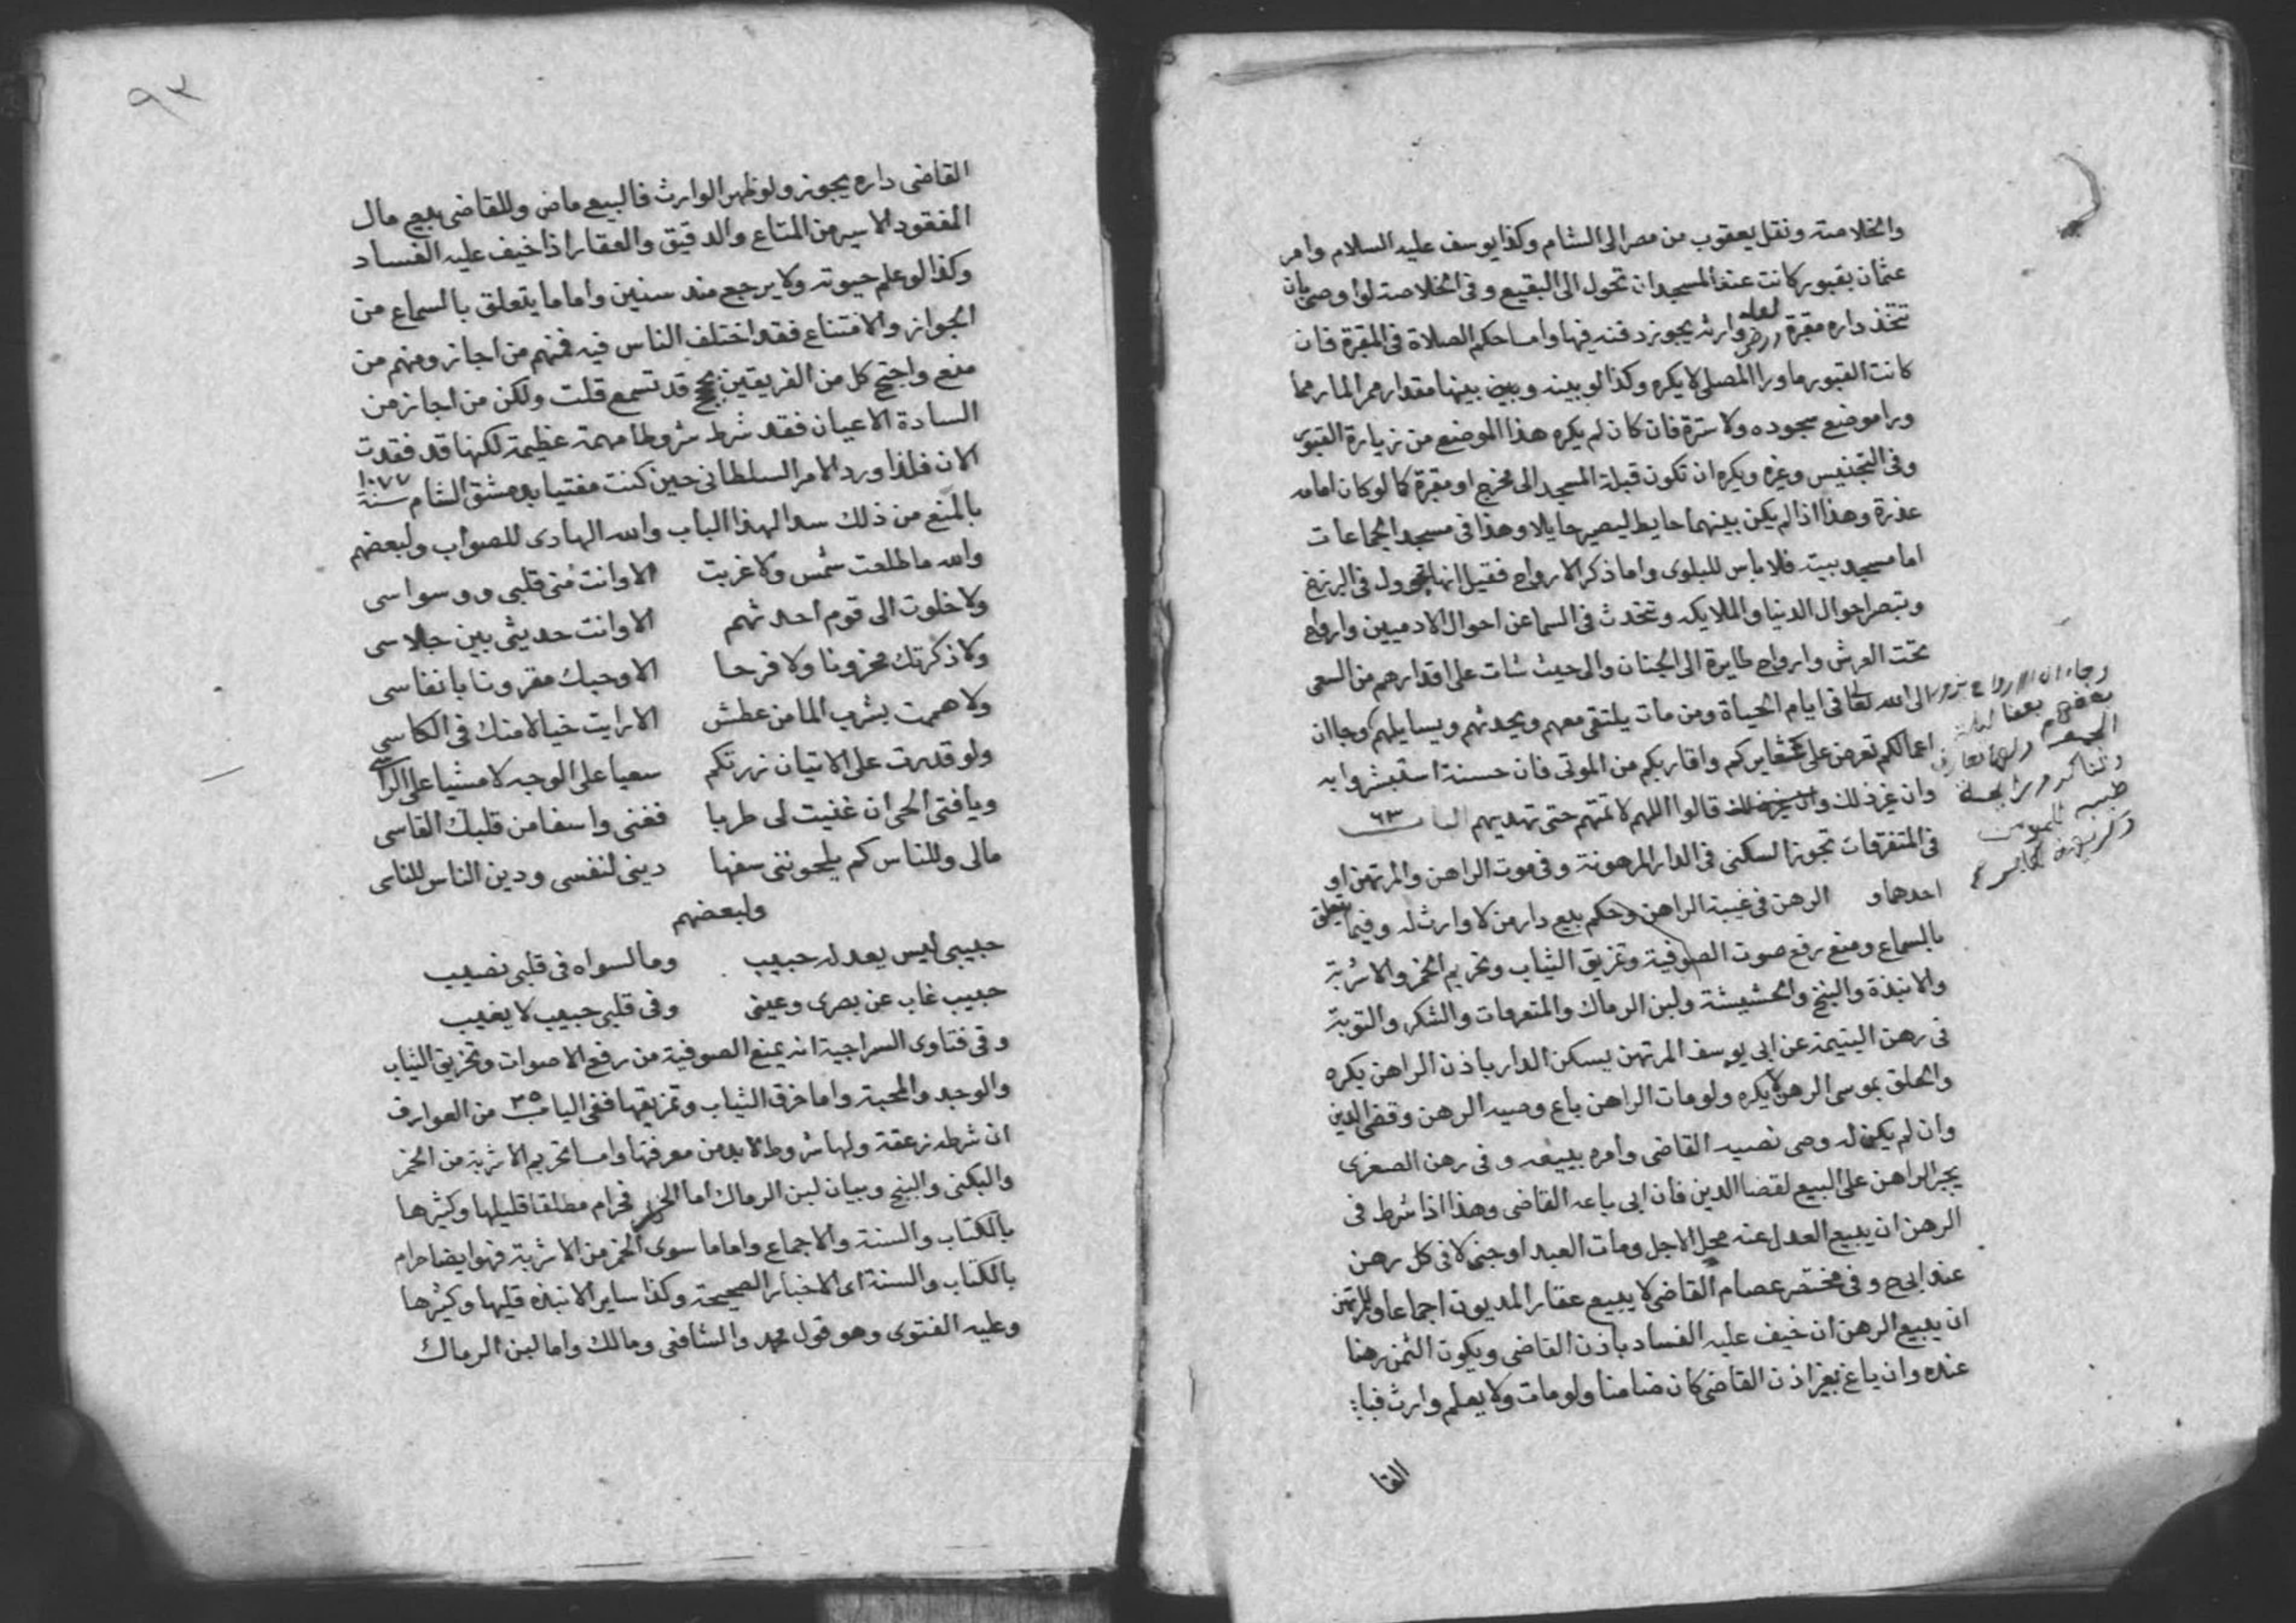 والخلاصة ونقل يعقوب من مصر الى الشام وكذا يوسف عليه السلام وامر
عثمان بقبور كانت عند المسجد ان تحول الى البقيع وفى الخلاصة لو اوصى بان
تتخذ داره مقبرة لعله ارض وارثه يجوز دفنه فيها واما حكم الصلاة فى المقبرة فان
كانت القبور ما ورا المصلى لا يكره وكذا لو بينه وبين بينها مقدار ممر المار مما
ورا موضع سجوده ولا سترة فان كان لم يكره هذا الموضع من زيارة القبور
وفى التجنيس وغيره ويكره ان تكون قبلة المسجد الى مخرج او مقبرة كما لو كان امامه
عذرة وهذا اذا لم يكن بينهما حايط ليصير حايلا وهذا فى مسجد الجماعات
اما مسجد بيته فلا باس للبلوى واما ذكر الارواح فقيل انها تجول فى البرزخ
وتبصر احوال الدنيا والملايكه وتتحدث فى السما عن احوال الادميين وارواح
تحت العرش وارواح طايرة الى الجنان والى حيث شات على اقدارهم من السعى
الى الله تعا فى ايام الحياة ومن مات يلتقى معهم ويحدثهم ويسايلهم وجا ان
اعمالكم تعرض على عشايركم واقاربكم من الموتى فان حسنة استبشروا به
وان غير ذلك قالوا اللهم لا تمتهم حتى تهديهم الباب ٦٣
فى المتفرقات تجوز السكنى فى الدار المرهونة وفى موت الراهن والمرتهن او
احدهما و الرهن فى غيبة الراهن وحكم بيع دار من لا وارث له وفيما يتعلق
بالسماع ومنع رفع صوت الصوفية وتمزيق الثياب وتحريم الخمر والاشربة
والانبذة والبنج والحشيشة ولبن الرماك والمتفرقات والشكر والتوبة
فى رهن اليتيمة عن ابى يوسف المرتهن يسكن الدار باذن الراهن يكره
والحلق بموسى الرهن لا يكره ولو مات الراهن باع وصيه الرهن وقضى الدين
وان لم يكن له وصى نصبه القاضى وامره ببيعه وفى رهن الصغرى
يجبر الراهن على البيع لقضا الدين فان ابى باعه القاضى وهذا اذا شرط فى
الرهن ان يبيع العدل عند محل الاجل ومات العبد او جنى لا فى كل رهن
عند ابى ح وفى مختصر عصام القاضى لا يبيع عقار المديون اجماعا وللمرتهن
ان يبيع الرهن ان خيف عليه الفساد باذن القاضى ويكون الثمن رهنا
عنده وان باع بغير اذن القاضى كان ضامنا ولو مات ولا يعلم وارث فباع
القا
وجاء ان الارواح تزور
بعضهم بعضا ليلة
الجمعة
٩٣
القاضى داره يجوز ولو ظهر الوارث فالبيع ماض وللقاضى بيع مال
المفقود الاسير من المتاع والدقيق والعقار اذا خيف عليه الفساد
وكذا لو علم حيوته ولا يرجع منذ سنين واما ما يتعلق بالسماع من
الجواز والامتناع فقد اختلف الناس فيه فمنهم من اجاز ومنهم من
منع واحتج كل من الفريقين بحجج قد تسمع قلت ولكن من اجاز من
السادة الاعيان فقد شرط شروطا مهمة عظيمة لكنها قد فقدت
الان فلذا ورد الامر السلطانى حين كنت مفتيا بدمشق الشام سنة ١٠٧٧
بالمنع من ذلك سدا لهذا الباب والله الهادى للصواب ولبعضهم
والله ما طلعت شمس ولا غربت الا وانت منى قلبى ووسواسى
ولا خلوت الى قوم احدثهم الا وانت حديثى بين جلاسى
ولا ذكرتك محزونا ولا فرحا الا وحبك مقرونا بانفاسى
ولا هممت بشرب الما من عطش الا رايت خيالا منك فى الكاسى
ولو قدرت على الاتيان زرتكم سعيا على الوجه لا مشيا على الراسى
ويا فتى الحى ان غنيت لى طربا فغنى واسفا من قلبك القاسى
مالى وللناس كم يلحوننى سفها دينى لنفسى ودين الناس للناس
ولبعضهم
حبيبى ليس يعدله حبيب وما لسواه فى قلبى نصيب
حبيب غاب عن بصرى وعينى وفى قلبى حبيب لا يغيب
وفى فتاوى السراجية انه يمنع الصوفية من رفع الاصوات وتخريق الثياب
والوجد والمحبة واما خرق الثياب وتمزيقها ففى الباب ٣٥ من العوارف
ان شرطه زعقة ولها شروط لا بد من معرفتها واما تحريم الاشربة من الخمر
والبكنى والبنج وبيان لبن الرماك اما الخمر فحرام مطلقا قليلها وكثيرها
بالكتاب والسنة والاجماع واما ما سوى الخمر من الاشربة فهو ايضا حرام
بالكتاب والسنة اى الاخبار الصحيحة وكذا ساير الانبذه قليها وكثيرها
وعليه الفتوى وهو قول محمد والشافعى ومالك واما لبن الرماك